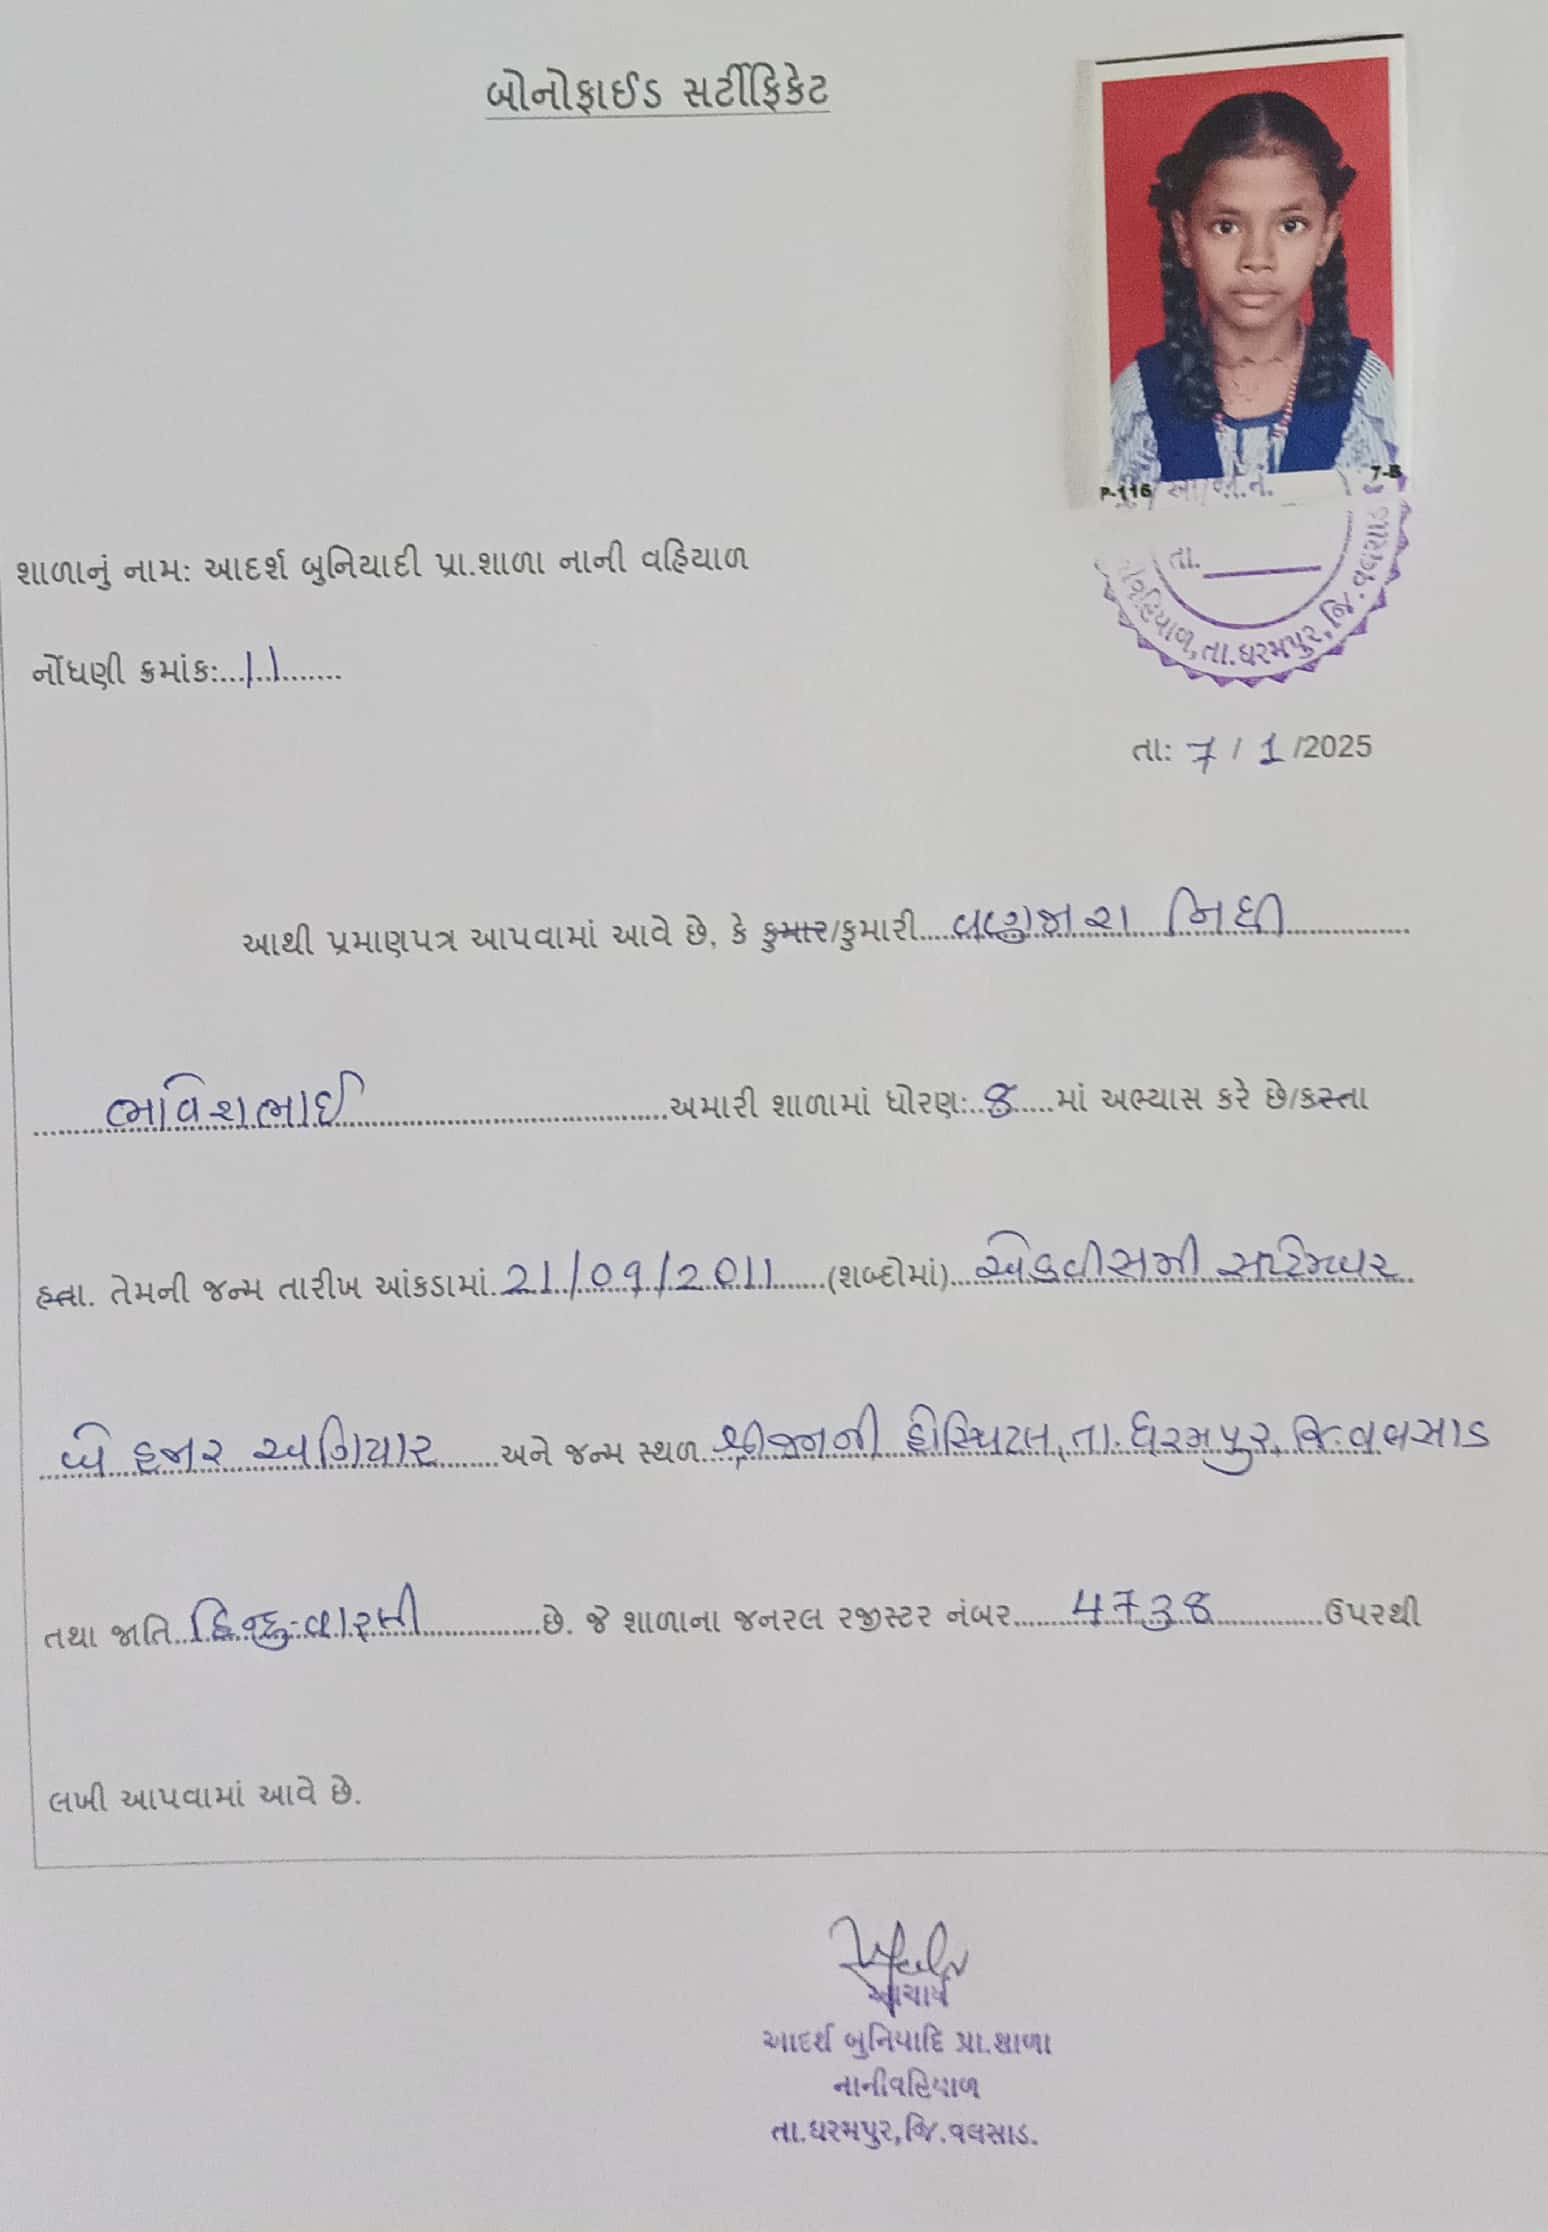 બોનોફાઈડ સર્ટીફિકેટ
P-116 7-B
તા.
તા.ધરમપુર, જિ.વલસાડ
શાળાનું નામ: આદર્શ બુનિયાદી પ્રા.શાળા નાની વહિયાળ
નોંધણી ક્રમાંક:...11.......
તા: 7 / 1 /2025
આથી પ્રમાણપત્ર આપવામાં આવે છે, કે કુમાર/કુમારી.....વણજારા નિધી.............
ભાવિશભાઈ.............અમારી શાળામાં ધોરણ:..8.....માં અભ્યાસ કરે છે/કરતા
હતા. તેમની જન્મ તારીખ આંકડામાં.21/09/2011......(શબ્દોમાં)...એકવીસમી સપ્ટેમ્બર
બે હજાર અગિયાર.......અને જન્મ સ્થળ.શ્રીજનની હોસ્પિટલ,તા.ધરમપુર,જિ.વલસાડ
તથા જાતિ..હિન્દુ-વારલી.............છે. જે શાળાના જનરલ રજીસ્ટર નંબર.......4738.............ઉપરથી
લખી આપવામાં આવે છે.
આચાર્ય
આદર્શ બુનિયાદિ પ્રા.શાળા
નાનીવહિયાળ
તા.ધરમપુર,જિ.વલસાડ.